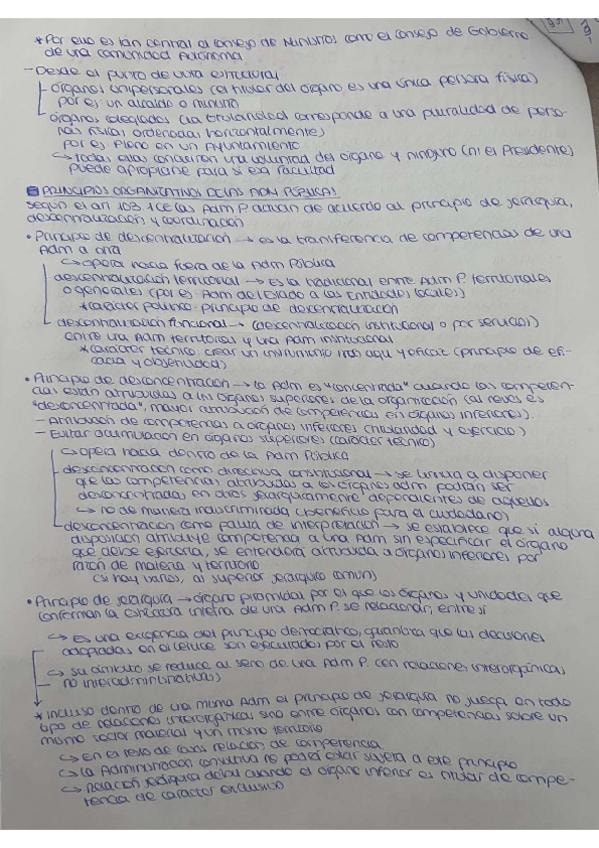 * Por eso es tan central el Consejo de Ministros como el Consejo de Gobierno
de una comunidad Autónoma
- Desde el punto de vista estructural
órganos unipersonales (el titular del órgano es una única persona física)
por ej: un alcalde o ministro
órganos colegiados (la titularidad corresponde a una pluralidad de perso-
nas físicas ordenadas horizontalmente)
por ej: Pleno en un Ayuntamiento
↳ todas ellas una voluntad del órgano y ninguno (ni el Presidente)
puede apropiarse para sí esa facultad
PRINCIPIOS ORGANIZATIVOS DE LAS ADM PÚBLICAS
según el art 103.1 CE las Adm P actúan de acuerdo al principio de jerarquía,
descentralización y coordinación
• Principio de descentralización → es la transferencia de competencias de una
Adm a otra
↳ opera hacia fuera de la Adm Pública
descentralización territorial → es la tradicional entre Adm P. territoriales
o generales (por ej Adm del Estado a las Entidades Locales)
* carácter político: principio de descentralización
descentralización funcional → (descentralización institucional o por servicios)
entre una Adm territorial y una Adm institucional
* carácter técnico: crear un instrumento más y eficaz (principio de efi-
cacia y objetividad)
• Principio de desconcentración → la Adm es "concentrada" cuando las competen-
cias están atribuidas a los órganos superiores de la organización (al revés es
"desconcentrada", mayor atribución de competencias en órganos inferiores).
- Atribución de competencias a órganos inferiores (titularidad y ejercicio)
- Evitar acumulación en órganos superiores (carácter técnico)
↳ opera hacia dentro de la Adm Pública
desconcentración como directiva constitucional → se limita a disponer
que las competencias atribuidas a los órganos adm podrán ser
desconcentradas en otros jerárquicamente dependientes de aquellos
↳ no de manera indiscriminada (beneficio para el ciudadano)
desconcentración como pauta de interpretación → se establece que si alguna
disposición atribuye competencia a una Adm sin especificar el órgano
que debe ejercerla, se entenderá atribuida a órganos inferiores por
razón de materia y territorio
(si hay varios, al superior jerárquico común)
• Principio de jerarquía → órgano piramidal por el que los órganos y unidades que
conforman la estructura interna de una Adm P. se relacionan entre sí
↳ es una exigencia del principio democrático, garantiza que las decisiones
adoptadas en el vértice son ejecutadas por el resto
↳ su ámbito se reduce al seno de una Adm P. (en relaciones interorgánicas,
no interadministrativas)
* incluso dentro de una misma Adm el principio de jerarquía no juega en todo
tipo de relaciones interorgánicas sino entre órganos con competencias sobre un
mismo sector material y un mismo territorio
↳ en el resto de casos relación de competencia
↳ la Administración consultiva no podrá estar sujeta a este principio
↳ relación jerárquica débil cuando el órgano inferior es titular de compe-
tencia de carácter exclusivo